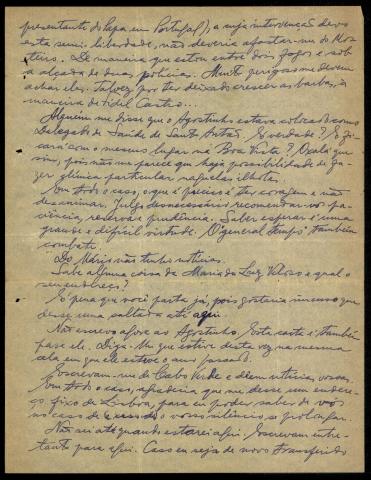 presentante do Papa em Portugal), a cuja intervenção devo
esta semi-liberdade, não deveria afastar-me do Mos-
teiro. De maneira que estou entre dois fogos e sob
a alçada de duas polícias. Muito perigoso me devem
achar eles. Talvez por ter deixado crescer as barbas, à
maneira de Fidil Castro...
Alguém me disse que o Agostinho estava colocado como
Delegado de Saúde de Santo Antão. É verdade? E fi-
cará com o mesmo lugar na Boa Vista? Oxalá que
sim, pois não me parece que haja possibilidade de fa-
zer clínica particular naquelas ilhotas.
Em todo o caso, o que é preciso é ter coragem e não
desanimar. Julgo desnecessário recomendar-vos pa-
ciência, reserva e prudência. Saber esperar é uma
grande e difícil virtude. O "general tempo" também
combate.
Do Mário não tenho notícias.
Sabe alguma coisa da Maria da Luz Veloso e qual o
seu endereço?
É pena que você parta já, pois gostaria imenso que
desse uma saltada até aqui.
Não escrevo agora ao Agostinho. Esta carta é também
para ele. Diga-lhe que estive desta vez na mesma
cela em que ele esteve o ano passado.
Escrevam-me de Cabo Verde e dêem notícias vossas.
Em todo o caso, agradecia que me desse um ende-
reço fixo de Lisboa, para eu poder saber de vós
no caso de o vosso silêncio se prolongar.
Não sei até quando estarei aqui. Escrevam entre-
tanto para aqui. Caso eu seja de novo transferido